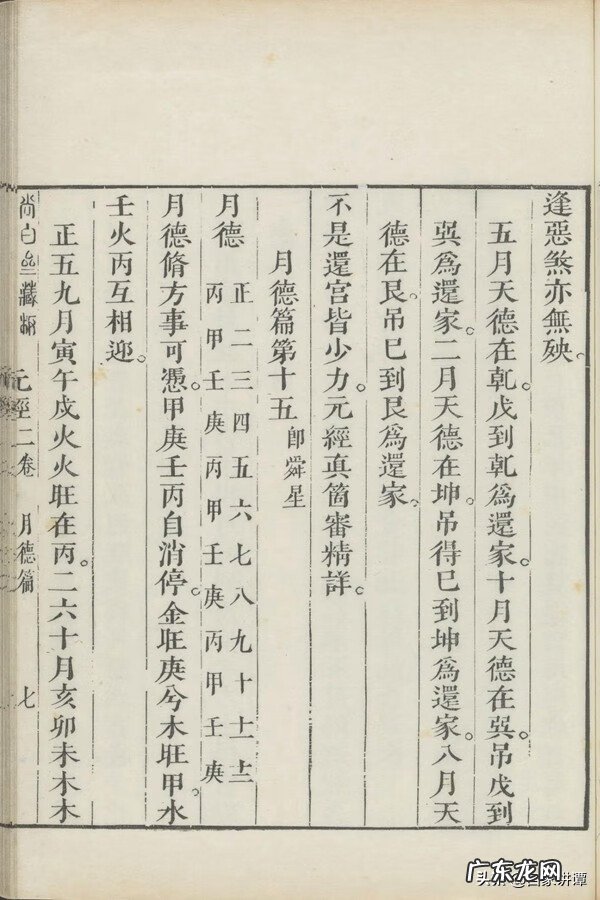 逢惡煞亦無殃。
五月天德在乹。戊到乹爲還家。十月天德在巽。吊戊到
巽爲還家。二月天德在坤。吊得巳到坤爲還家。八月天
德在艮。吊巳到艮爲還家。
不是還宫皆少力。元經真箇審精詳。
月德篇第十五 即舜星
月德 正二三四五六七八九十十一十二
丙甲壬庚丙甲壬庚丙甲壬庚
月德脩方事可憑。甲庚壬丙自消停。金旺庚兮木旺甲。水
壬火丙互相迎。
正五九月寅午戍火火旺在丙。二六十月亥卯未木木
尚白齋藏板 元經二卷 月德篇 七
广东龙网
头条 @百家讲谭